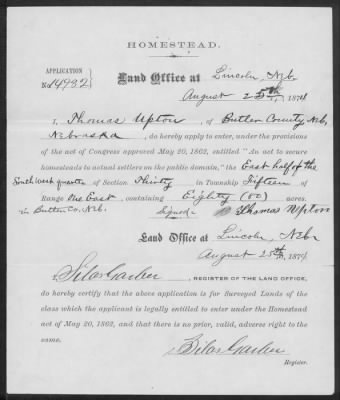 HOMESTEAD.
APPLICATION
No. 14982
Land Office at Lincoln, Neb.
August 25th 1874
I, Thomas Upton, of Butler County, Neb,
Nebraska, do hereby apply to enter, under the provisions
of the act of Congress approved May 20, 1862, entitled "An act to secure
homesteads to actual settlers on the public domain," the East half of the
South west quarter of Section Thirty in Township Fifteen of
Range One East, containing Eighty (80) acres.
in Butler Co. Neb. Signed: Thomas Upton
Land Office at Lincoln, Neb
August 25th 1874
I, Silas Garber, REGISTER OF THE LAND OFFICE,
do hereby certify that the above application is for Surveyed Lands of the
class which the applicant is legally entitled to enter under the Homestead
act of May 20, 1862, and that there is no prior, valid, adverse right to the
same.
Silas Garber
Register.